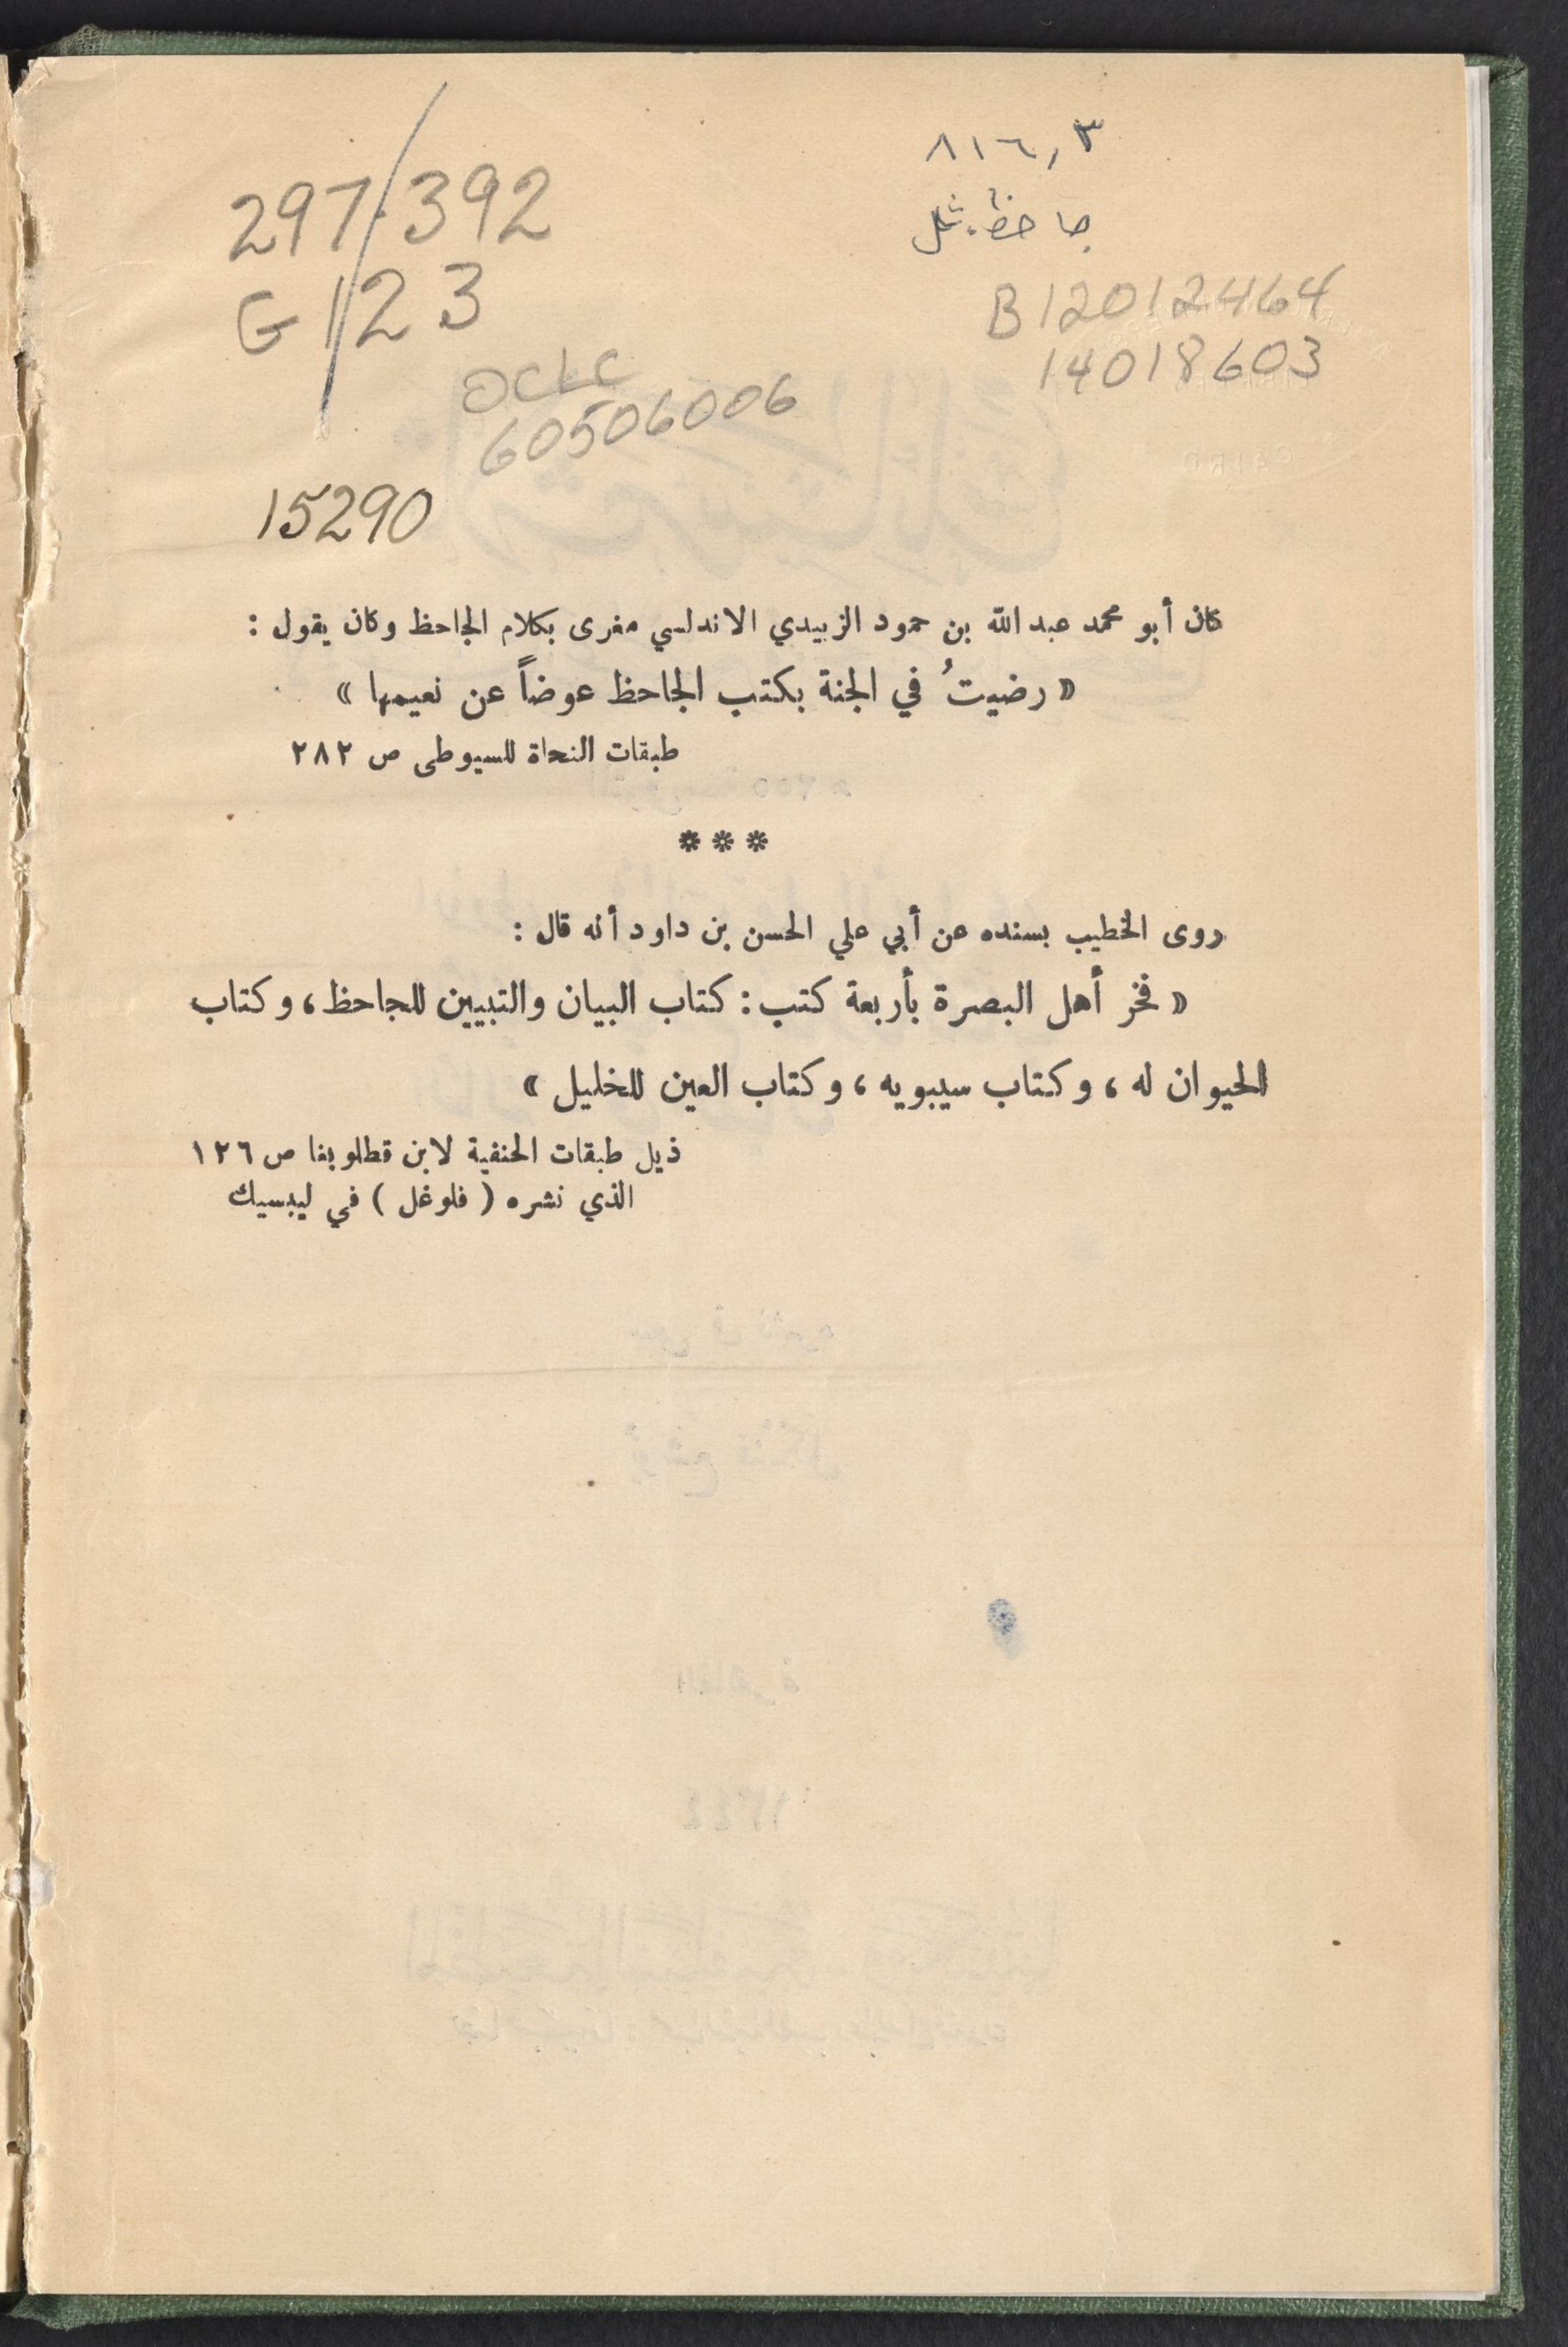 ٨١٦,٣
جاحظ. ثل
297.392
G123
B12012464
14018603
OCLC
60506006
15290
كان أبو محمد عبد الله بن حمود الزبيدي الاندلسي مغرى بكلام الجاحظ وكان يقول :
« رضيتُ في الجنة بكتب الجاحظ عوضاً عن نعيمها »
طبقات النحاة للسيوطى ص ٢٨٢
***
روى الخطيب بسنده عن أبي علي الحسن بن داود أنه قال :
« فخر أهل البصرة بأربعة كتب : كتاب البيان والتبيين للجاحظ ، وكتاب
الحيوان له ، وكتاب سيبويه ، وكتاب العين للخليل »
ذيل طبقات الحنفية لابن قطلوبغا ص ١٢٦
الذي نشره ( فلوغل ) في ليبسيك
CAIRO